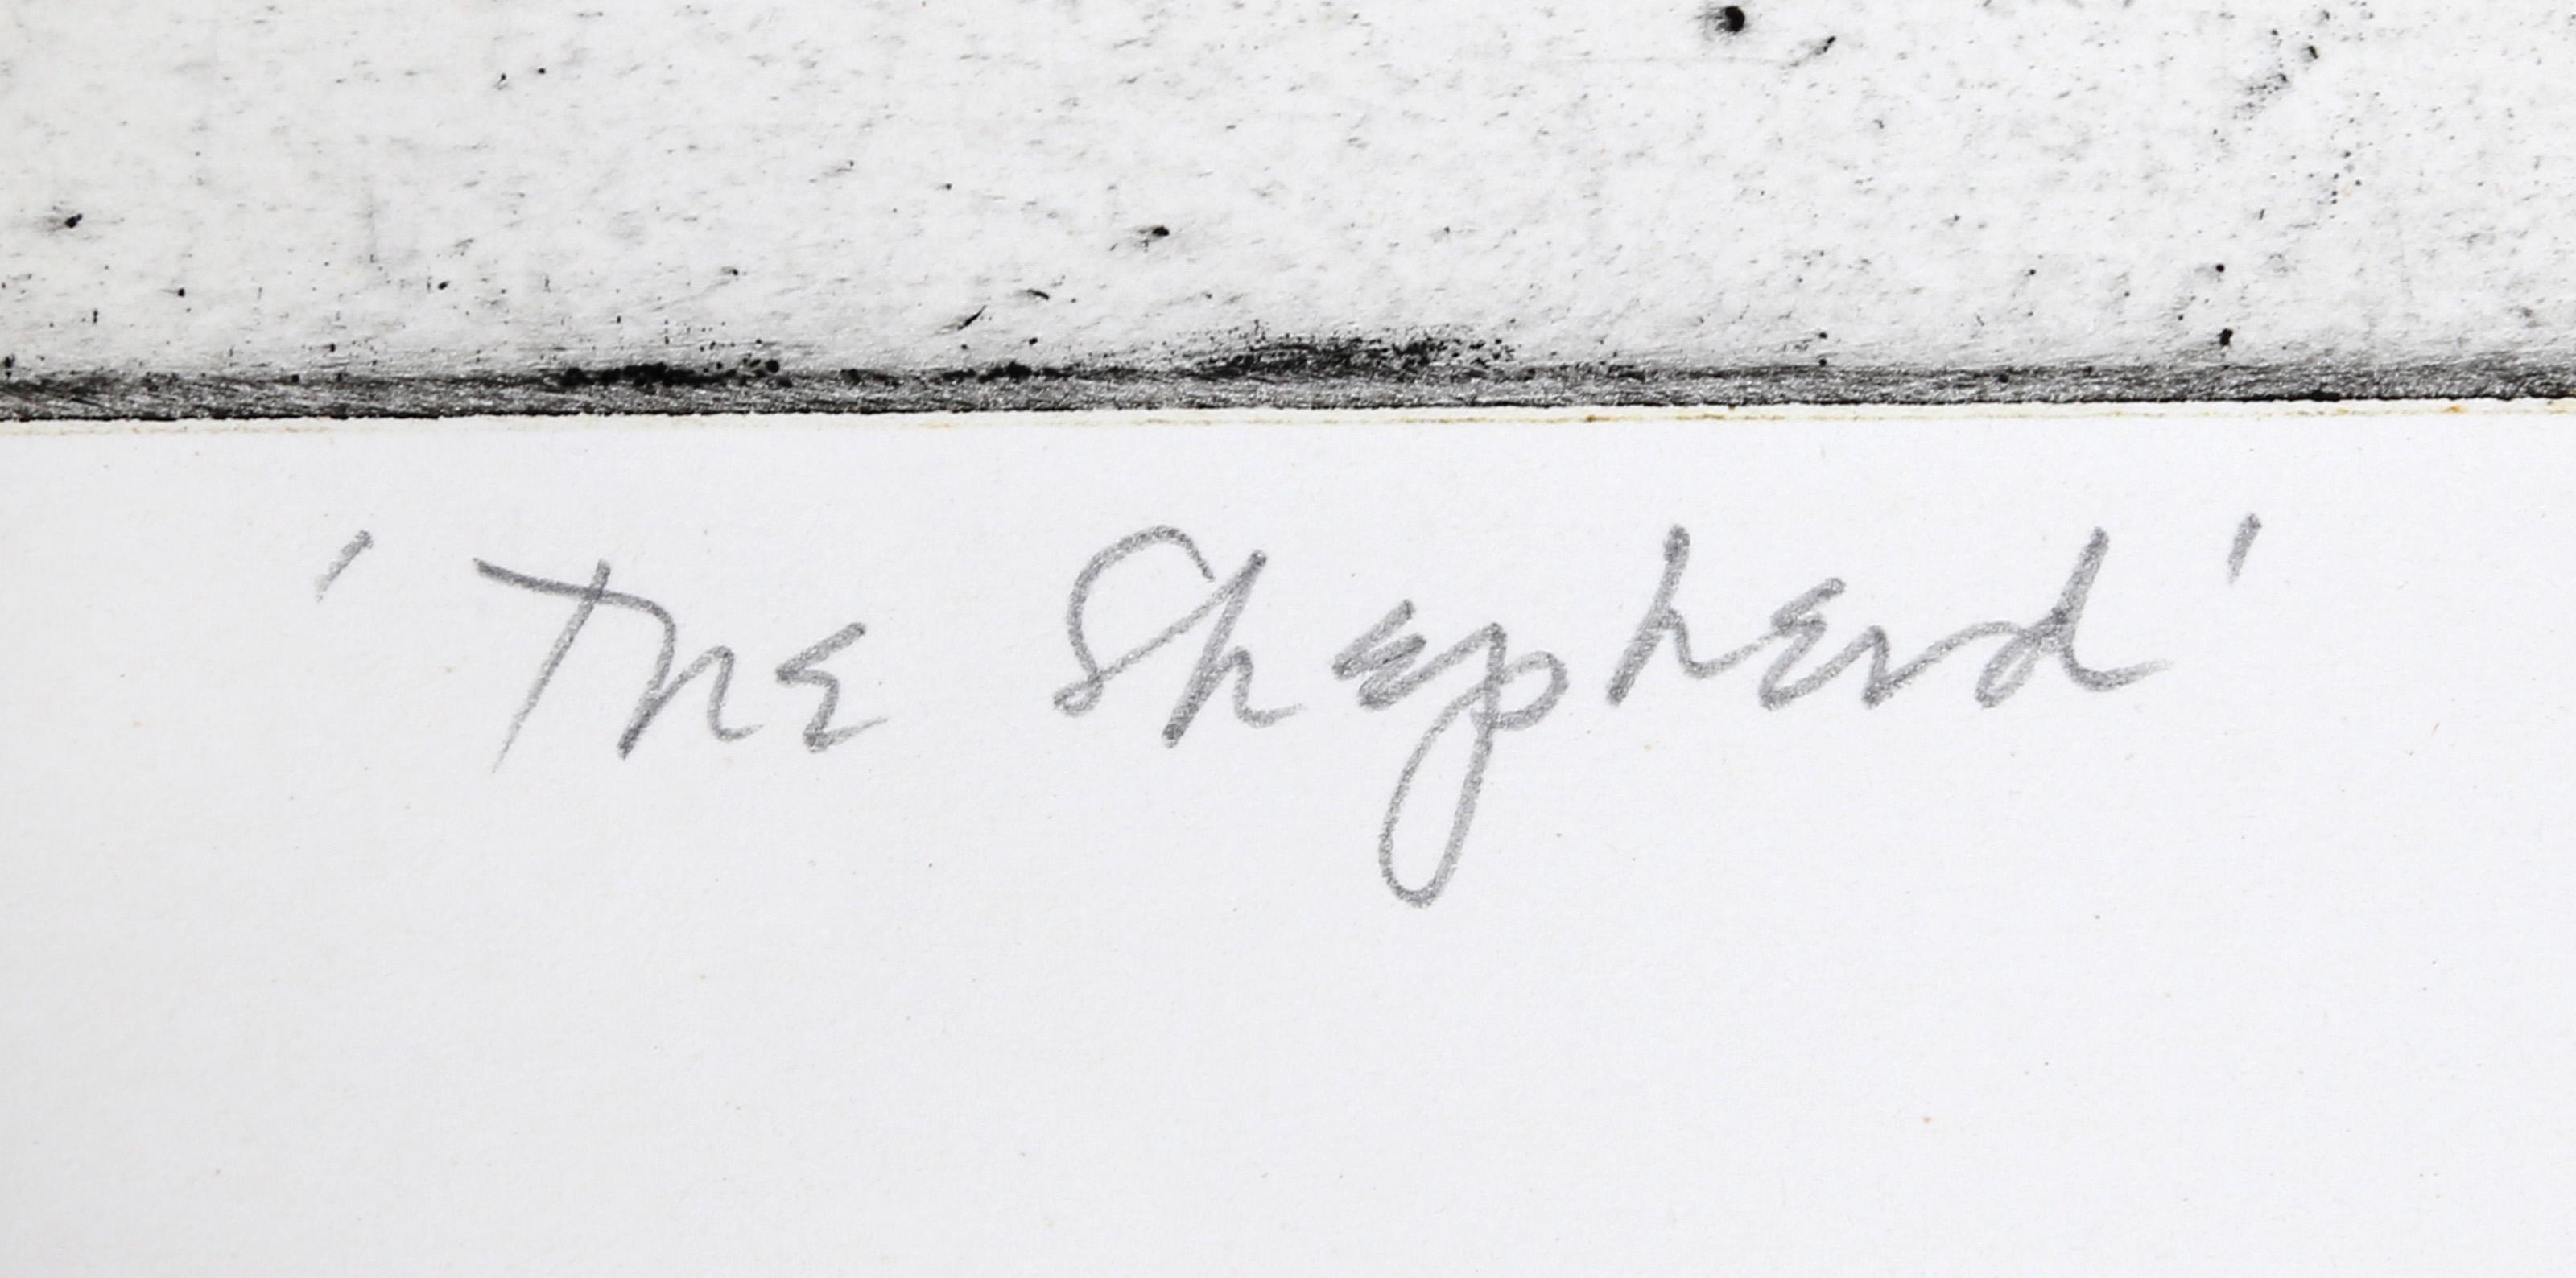 'The Shepherd'